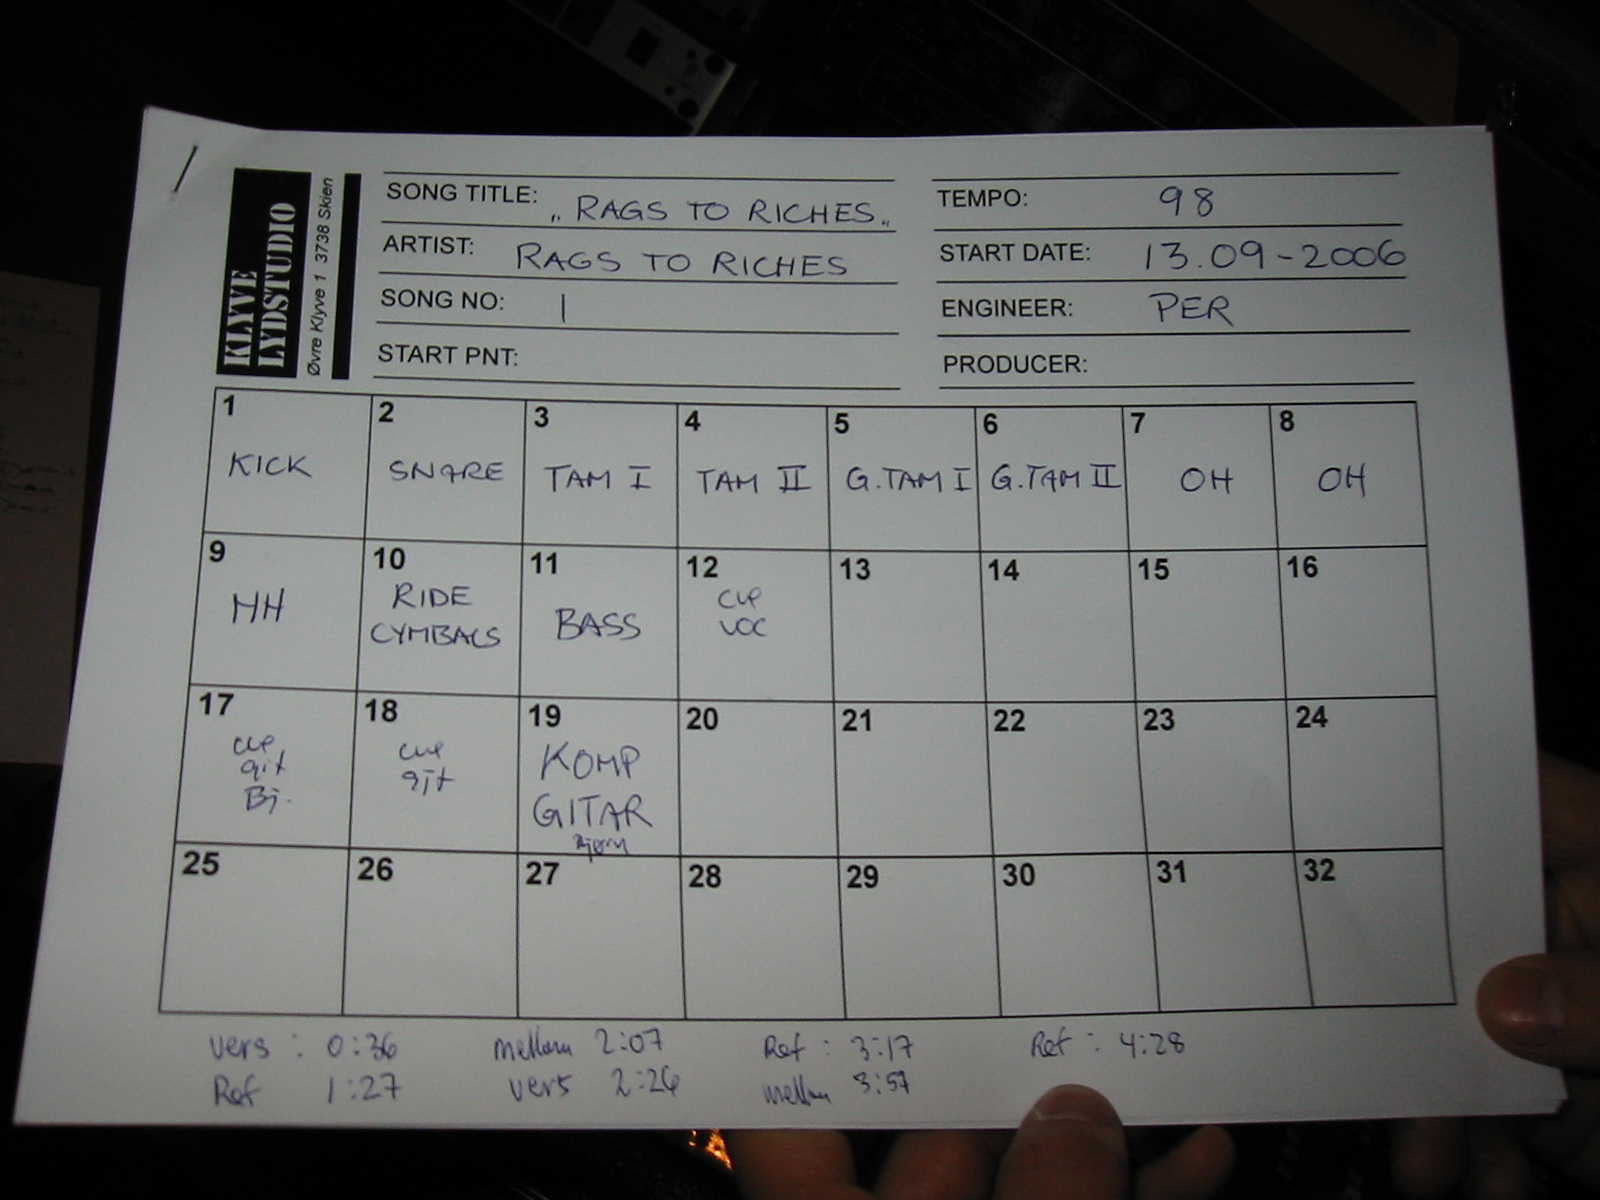 KLYVE
LYDSTUDIO
Øvre Klyve 1 3738 Skien
SONG TITLE: „ RAGS TO RICHES „
ARTIST: RAGS TO RICHES
SONG NO: 1
START PNT:
TEMPO: 98
START DATE: 13.09-2006
ENGINEER: PER
PRODUCER:
1 2 3 4 5 6 7 8
KICK SNARE TAM I TAM II G.TAM I G.TAM II OH OH
9 10 11 12 13 14 15 16
HH RIDE CYMBALS BASS cue voc
17 18 19 20 21 22 23 24
cue git Bj. cue git KOMP GITAR Bjørn
25 26 27 28 29 30 31 32
vers : 0:36 mellom 2:07 Ref : 3:17 Ref : 4:28
Ref 1:27 vers 2:26 mellom 3:57